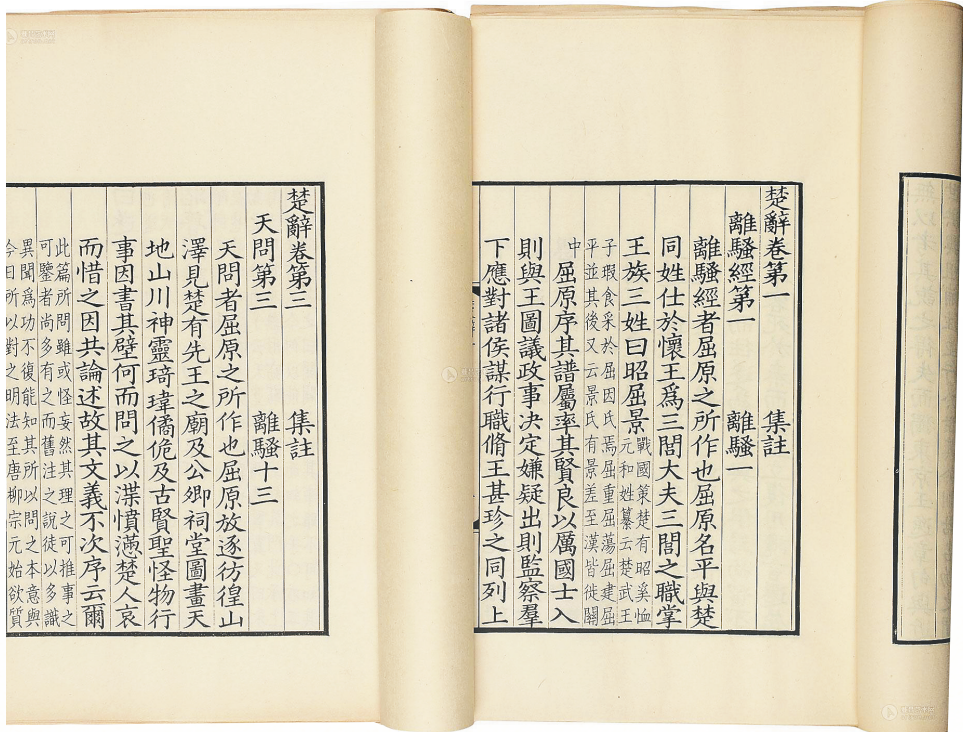 楚辭卷第一
集註
離騷經第一
離騷一
離騷經者屈原之所作也屈原名平與楚
同姓仕於懷王爲三閭大夫三閭之職掌
王族三姓曰昭屈景
戰國策楚有昭奚恤
元和姓纂云楚武王
子瑕食采於屈因氏焉屈重屈蕩屈建屈
平並其後又云景氏有景差至漢皆徙關
中
屈原序其譜屬率其賢良以厲國士入
則與王圖議政事決定嫌疑出則監察羣
下應對諸侯謀行職脩王甚珍之同列上
楚辭卷第三
集註
天問第三
離騷十三
天問者屈原之所作也屈原放逐彷徨山
澤見楚有先王之廟及公卿祠堂圖畫天
地山川神靈琦瑋僪佹及古賢聖怪物行
事因書其壁何而問之以渫憤懣楚人哀
而惜之因共論述故其文義不次序云爾
此篇所問雖或怪妄然其理之可推事之
可鑒者尚多有之而舊注之說徒以多識
異聞爲功不復能知其所以問之本意與
今日所以對之明法至唐柳宗元始欲質